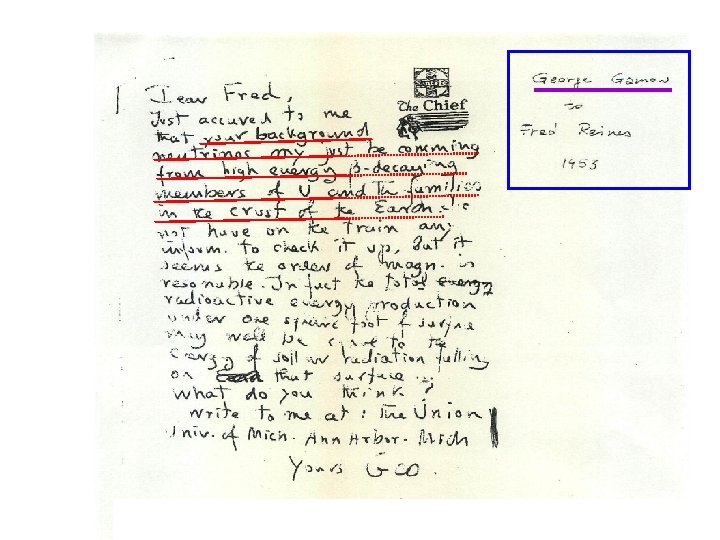 George Gamow
to
Fred Reines
1953
The Chief
Dear Fred,
Just accured to me
that your background
neutrinos my just be comming
from high energy β-decaying
members of U and Th families
in the crust of the Earth. I do
not have on the train any
inform. to check it up, but it
seems the order of magn. is
resonable. In fact the total energy
radioactive energy production
under one square foot of surfase
may well be to the
energy of radiation falling
on that surface.
What do you think?
Write to me at: The Union
Univ. of Mich. Ann Arbor. Mich
Yours Geo.